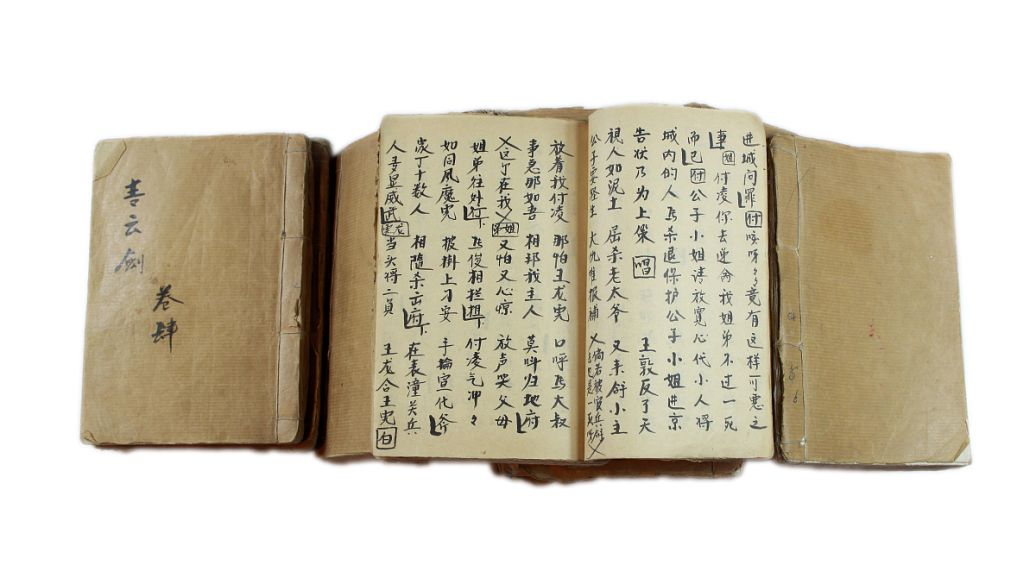 青云剑
卷肆
进城问罪付咳呀々竟有这样可恶之
事姐付凌你去逆禽我姐弟不过一死
而已付公子小姐请放宽心代小人将
城内的人马杀退保护公子小姐进京
告状乃为上策唱王敦反了天
视人如泥土屈杀老太爷又来斜小主
公子要登生大仇谁报补
放着我付凌那怕王龙児口呼马大叔
事急那如吾相邦我主人莫呌归地府
又怕又心惊放声哭父母
姐弟往外行下马俊相拦担下付凌气冲々
如同风魔児披掛上刀安手掄宣代斧
家丁十数人相随杀出府下在表潼关兵
人多显威武龙児当头将二員王龙合王児白